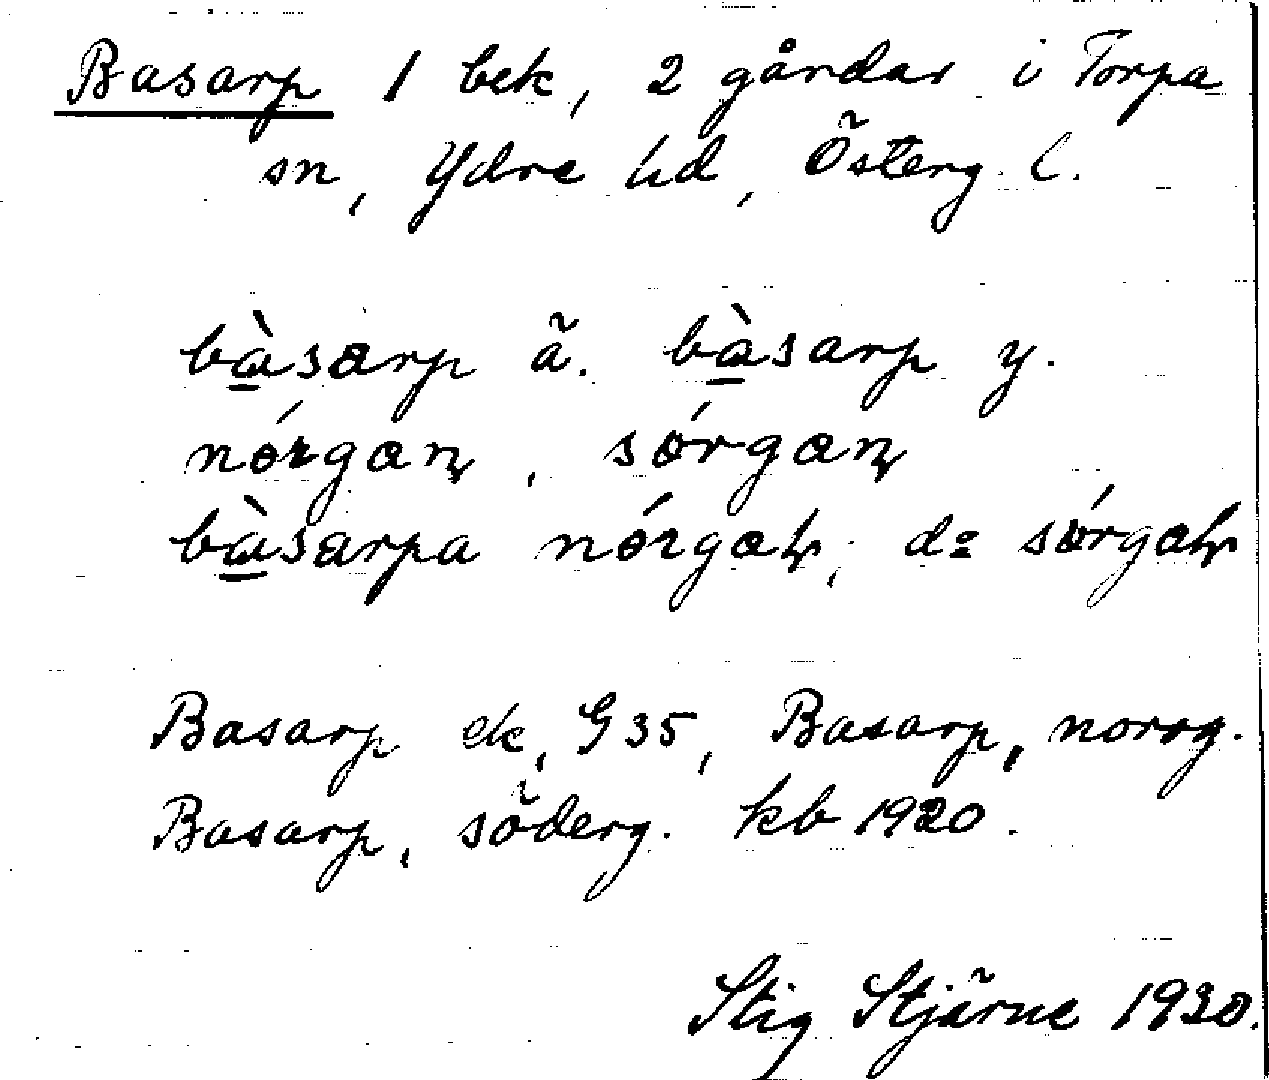 Basarp 1 bek, 2 gårdar i Torpa
sn, Ydre hd, Österg. l.
bàsarp ä. bàsarp y.
nórgan, sórgan
bàsarpa nórgaɫ, d:o sórgaɫ
Basarp ek, G35, Basarp, norrg.
Basarp, söderg. kb 1920.
Stig Stjärne 1930.